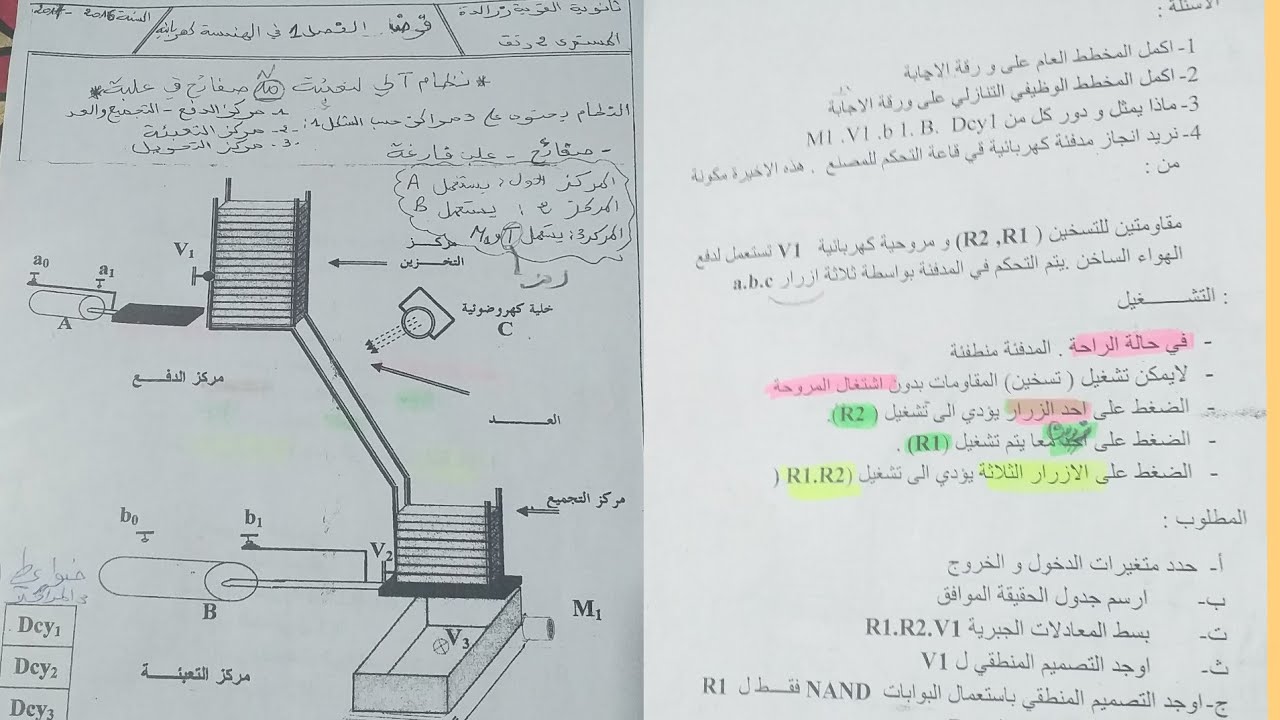 ثانوية القرية زرالدة
المستوى 2 تقت
فرض الفصل 1 في الهندسة كهربائية
السنة 2016 - 2017
* نظام آلي لتعبئة N صفائح في علبة *
النظام يحتوي على 3 مراكز حسب الشكل 1:
1. مركز الدفع - التجميع والعد
2. مركز التعبئة
3. مركز التحويل
- صفائح - علب فارغة
المركز الأول: يستعمل A
المركز 2: يستعمل B
المركز 3: يستعمل T و M1
مركز
التخزين
V1
a0
a1
A
خلية كهروضوئية
C
مركز الدفع
العد
مركز التجميع
b0
b1
V2
B
M1
V3
مركز التعبئة
Dcy1
Dcy2
Dcy3
الأسئلة :
1- اكمل المخطط العام على و رقة الاجابة
2- اكمل المخطط الوظيفي التنازلي على ورقة الاجابة
3- ماذا يمثل و دور كل من M1 .V1 .b 1. B. Dcy1
4- نريد انجاز مدفئة كهربائية في قاعة التحكم للمصنع . هذه الاخيرة مكونة
من :
مقاومتين للتسخين ( R2 ,R1) و مروحية كهربائية V1 تستعمل لدفع
الهواء الساخن .يتم التحكم في المدفئة بواسطة ثلاثة ازرار a.b.c
التشغيل :
- في حالة الراحة . المدفئة منطفئة
- لايمكن تشغيل ( تسخين) المقاومات بدون اشتغال المروحة
- الضغط على احد الزرار يؤدي الى تشغيل ( R2).
- الضغط على زرين معا يتم تشغيل (R1) .
- الضغط على الازرار الثلاثة يؤدي الى تشغيل (R1.R2 (
المطلوب :
أ- حدد متغيرات الدخول و الخروج
ب- ارسم جدول الحقيقة الموافق
ت- بسط المعادلات الجبرية R1.R2.V1
ث- اوجد التصميم المنطقي ل V1
ج- اوجد التصميم المنطقي باستعمال البوابات NAND فقط ل R1